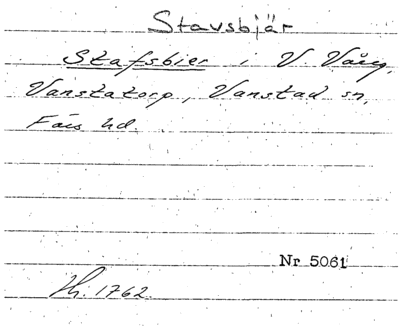 Stavsbjär
Stafsbier i V Vång,
Vanstatorp, Vanstad sn,
Färs hd.
Nr 5061
Hh. 1762.